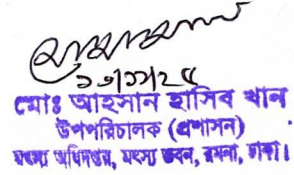 ১৩/১১/২৫
মোঃ আহসান হাসিব খান
উপপরিচালক (প্রশাসন)
মৎস্য অধিদপ্তর, মৎস্য ভবন, রমনা, ঢাকা।